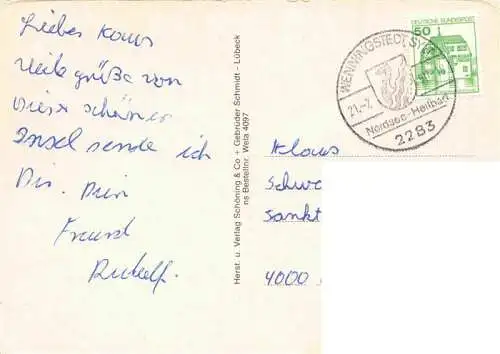 Liebes Klaus
viele Grüße von
dieser schönen
Insel sende ich
Dir. Dein
Freund
Rudolf.
Herst. u. Verlag Schöning & Co - Gebrüder Schmidt - Lübeck
ns Bestellnr. Wela 4097
DEUTSCHE BUNDESPOST
50
WENNINGSTEDT, SYLT
21.-7.
Nordsee-Heilbad
2283
Klaus
Schwe
Sankt
4000